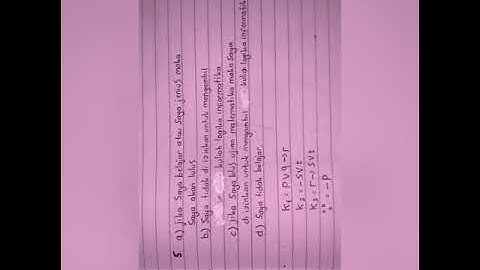 5 a) Jika Saya belajar atau Saya jenius maka
Saya akan lulus
b) Saya tidak di izinkan untuk mengambil
kuliah logika informatika
c) Jika Saya lulus ujian matematika maka Saya
di izinkan untuk mengambil kuliah logika informatik
d) Saya tidak belajar.
K1 = P V q → r
K2 = - S V t
K3 = r → S V t
∴ = - P